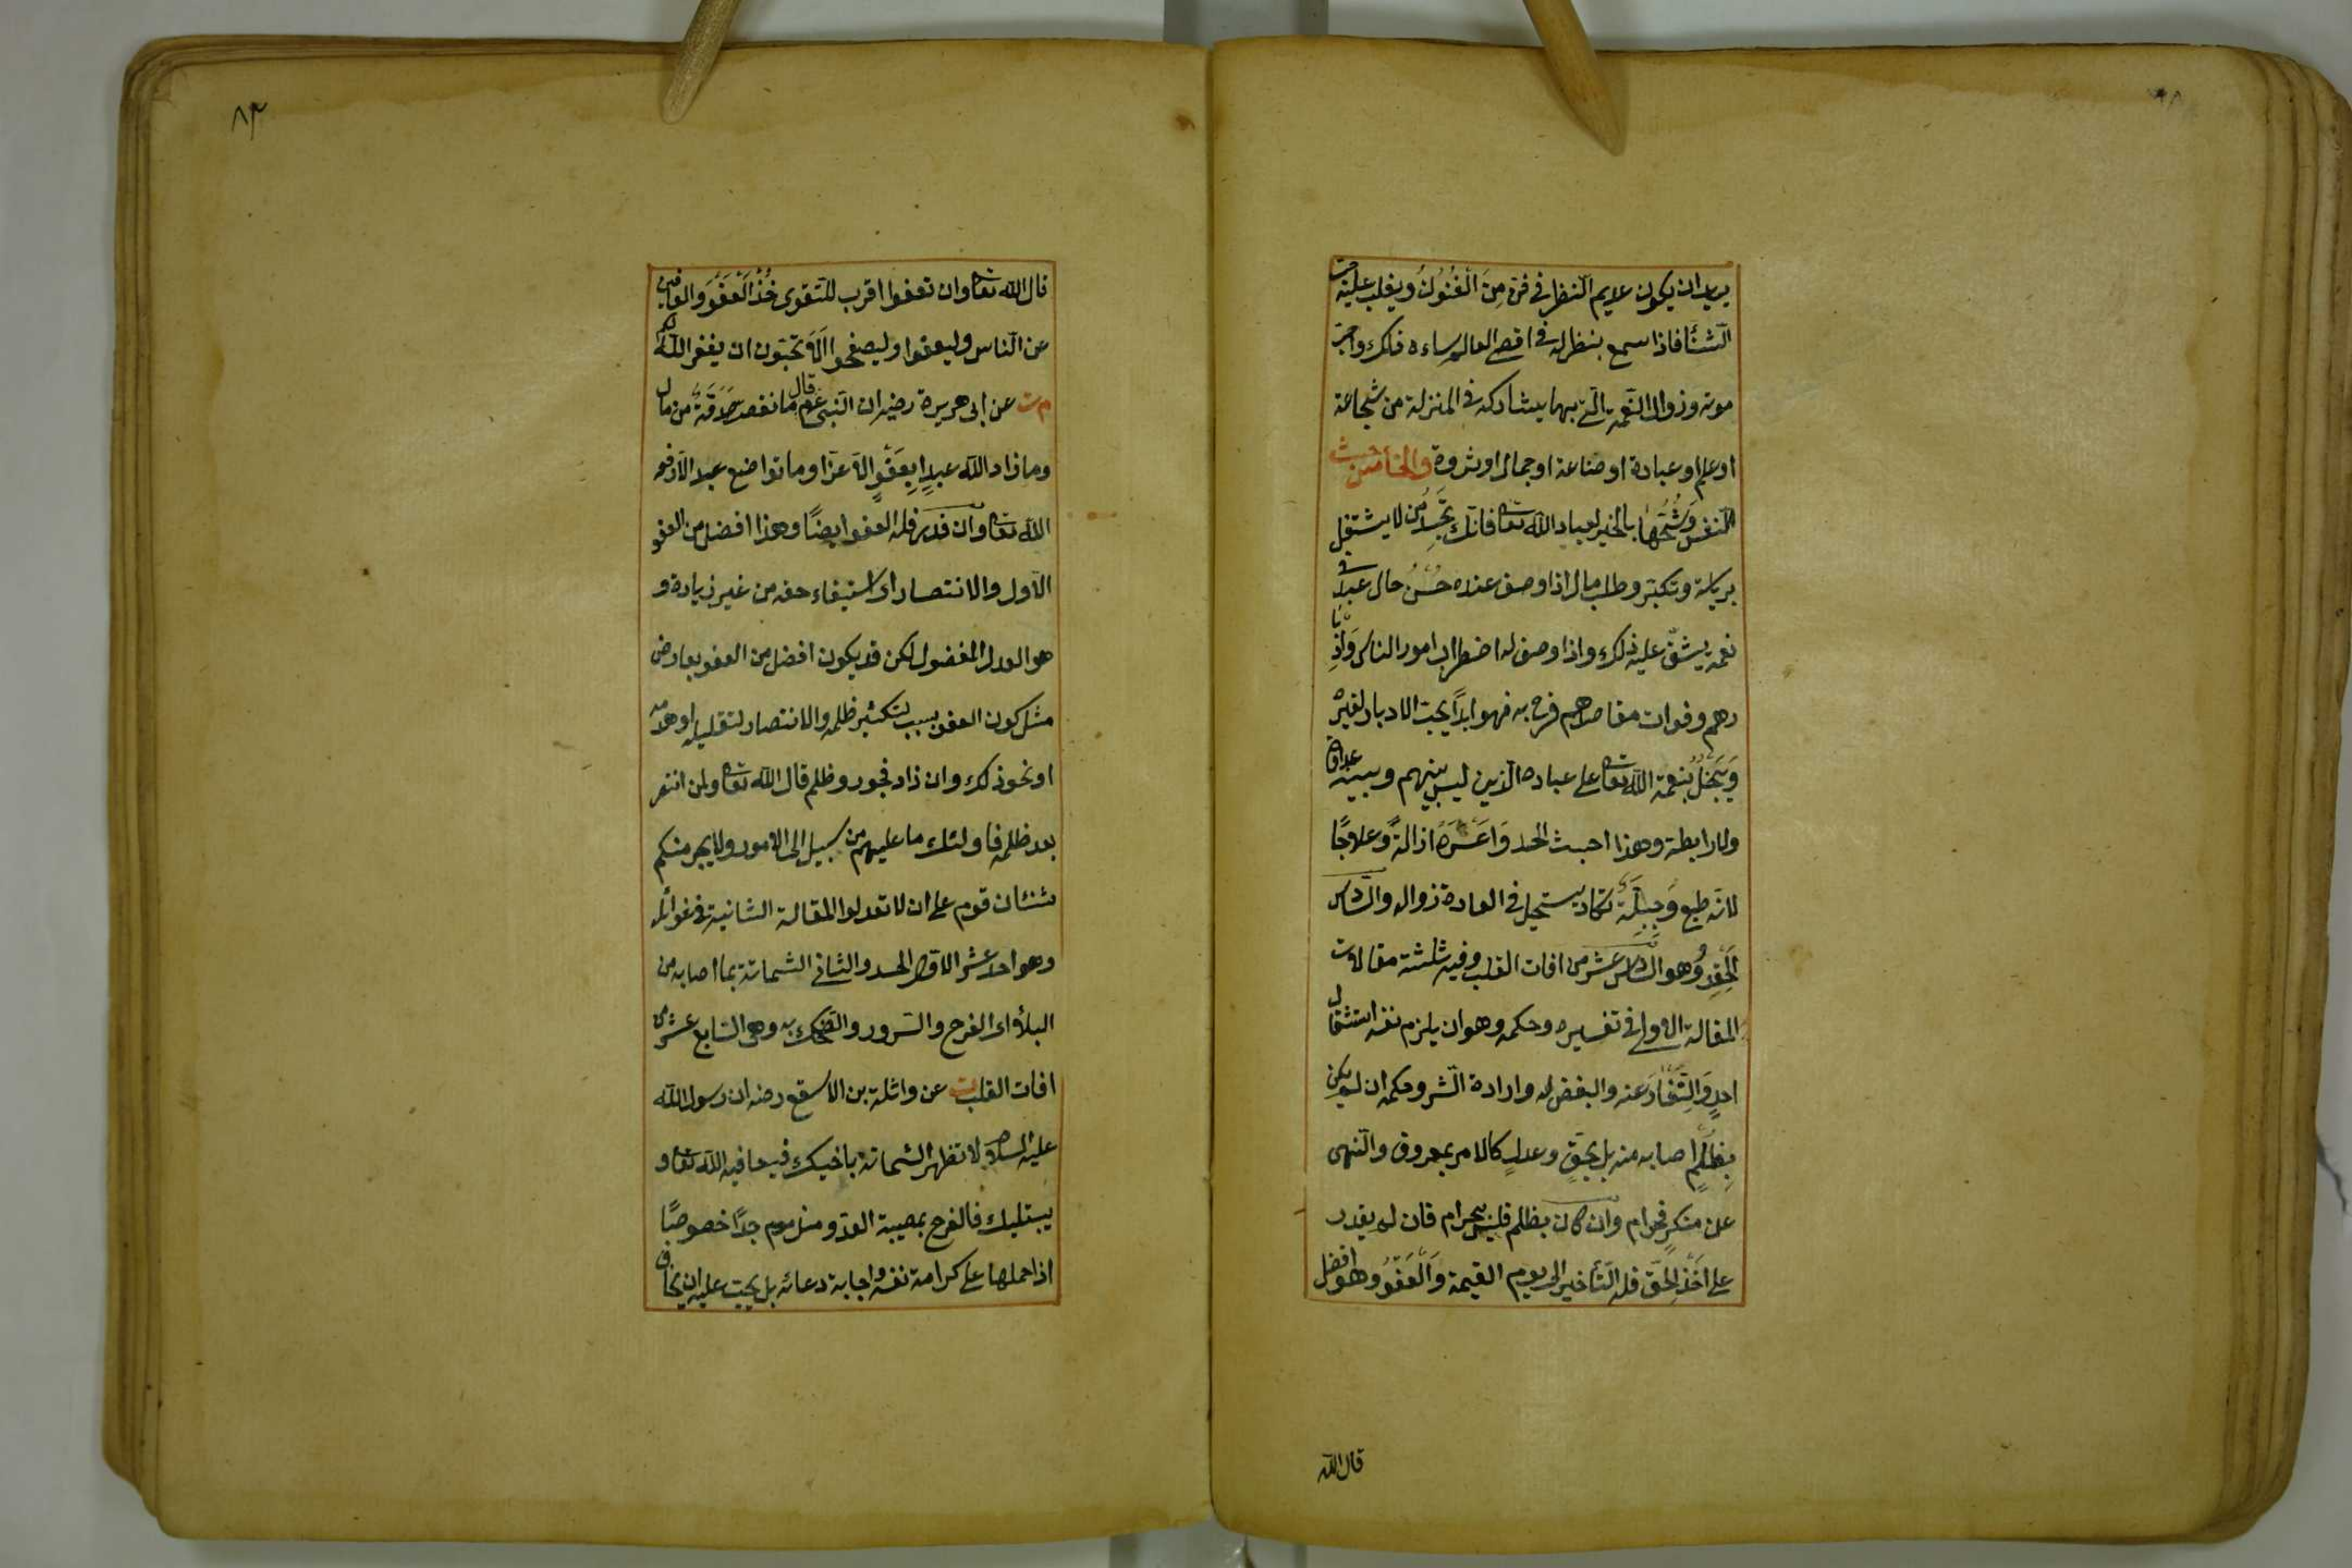 يريد ان يكون عديم النظر في فن مِنَ الْفُنُونِ ويغلب عليه حب
الثنا فاذا سمع بنظر له في اقصى العالم ساءه ذلك واحب
موته وزوال النعمة التي بها يشاركه في المنزلة من شجاعة
او علم او عبادة او صناعة او جمال او ثروة والخامس خبث
النفس وَشُحُّهَا بالخير لعباد الله تعا فانك تَجِدُ مَن لا يشتغل
برياسة وتكبر وطلب مال اذا وصف عنده حُسْنُ حال عبد في
نعمة يشقّ عليه ذلك واذا وصف له اضطراب امور الناس وَاِدْبَا
رهم وفوات مقاصدهم فرح به فهو ابداً يحب الادبار لغيره
وَيَبْخَلُ بنعمة الله تعا على عباده الذين ليس بينهم وبينه عداوة
ولا رابطة وهذا اخبث الحسد وَاَعْسَرَهُ ازالةً وعلاجًا
لانه طبع وَجِبِلَّة تكاد يستحيل في العادة زواله والسادس
الحِقد وُهو السادس عشر من افات القلب وفيه ثلثة مقالات
المقالة الاولى في تفسيره وحكمه وهو ان يلزم نفسه استثقال
احدٍ وَالنِّفَارَ عنه والبغض له وارادة الشر وحكمه ان لم يكن
بِظُلْمٍ اصابه منه بل بِحَقٍّ وعدلٍ كالامر بمعروف والنهى
عن منكرٍ فحرام وان كان بظلم فليس بحرام فان لم يقدر
على اَخْذِ الحَقّ فله التأخير الى يوم القيمة وَالْعَفْوُ وهو افضل
قال الله
٨٣
قال الله تعا وان تعفوا اقرب للتقوى خُذْ الْعَفْوَ والعافين
عن الناس وليعفوا وليصفحوا اَلَا تحبون ان يغفر الله لكم
م ت عن ابى هريرة رضه ان النبى عم قال ما نقصت صَدَقَةٌ من مال
وما زاد الله عبدا بِعَفْوٍ الا عزا وما تواضع عبد الا رفعه
الله تعا وان قدر فله العفو ايضًا وهذا افضل من العفو
الاول والانتصار اى استيفاء حقه من غير زيادة و
هو العدل المفضول لكن قد يكون افضل من العفو بعارض
مثل كون العفو بسبب لتكثير ظلمه والانتصار لتقليله او هدمه
او نحو ذلك وان زاد فجور وظلم قال الله تعا ولمن انتصر
بعد ظلمه فاولئك ما عليهم من سبيل الى الامور ولا يجرمنكم
شنئان قوم على ان لا تعدلوا المقالة الثانية في غوائله
وهو احد عشر الاول الحسد والثاني الشماتة بما اصابه من
البلاء اى الفرح والسرور والضحك به وهى السابع عشر من
افات القلب ت عن واثلة بن الاسقع رضه ان رسول الله
عليه السلام لا تظهر الشماتة باخيك فيعافيه الله تعا و
يبتليك فالفرح بمصيبة العدو مذموم جدًا خصوصًا
اذا حملها على كرامة نفسه واجابة دعائه بل يجب عليه ان يخاف